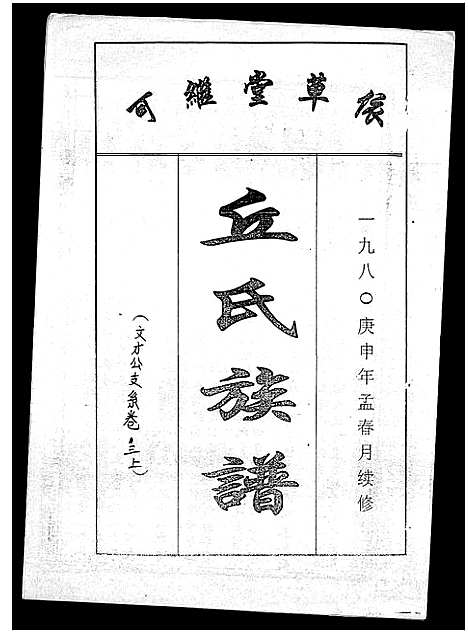 草堂維
一九八〇庚申年孟春月续修
丘氏族譜
（文才公支系卷三上）